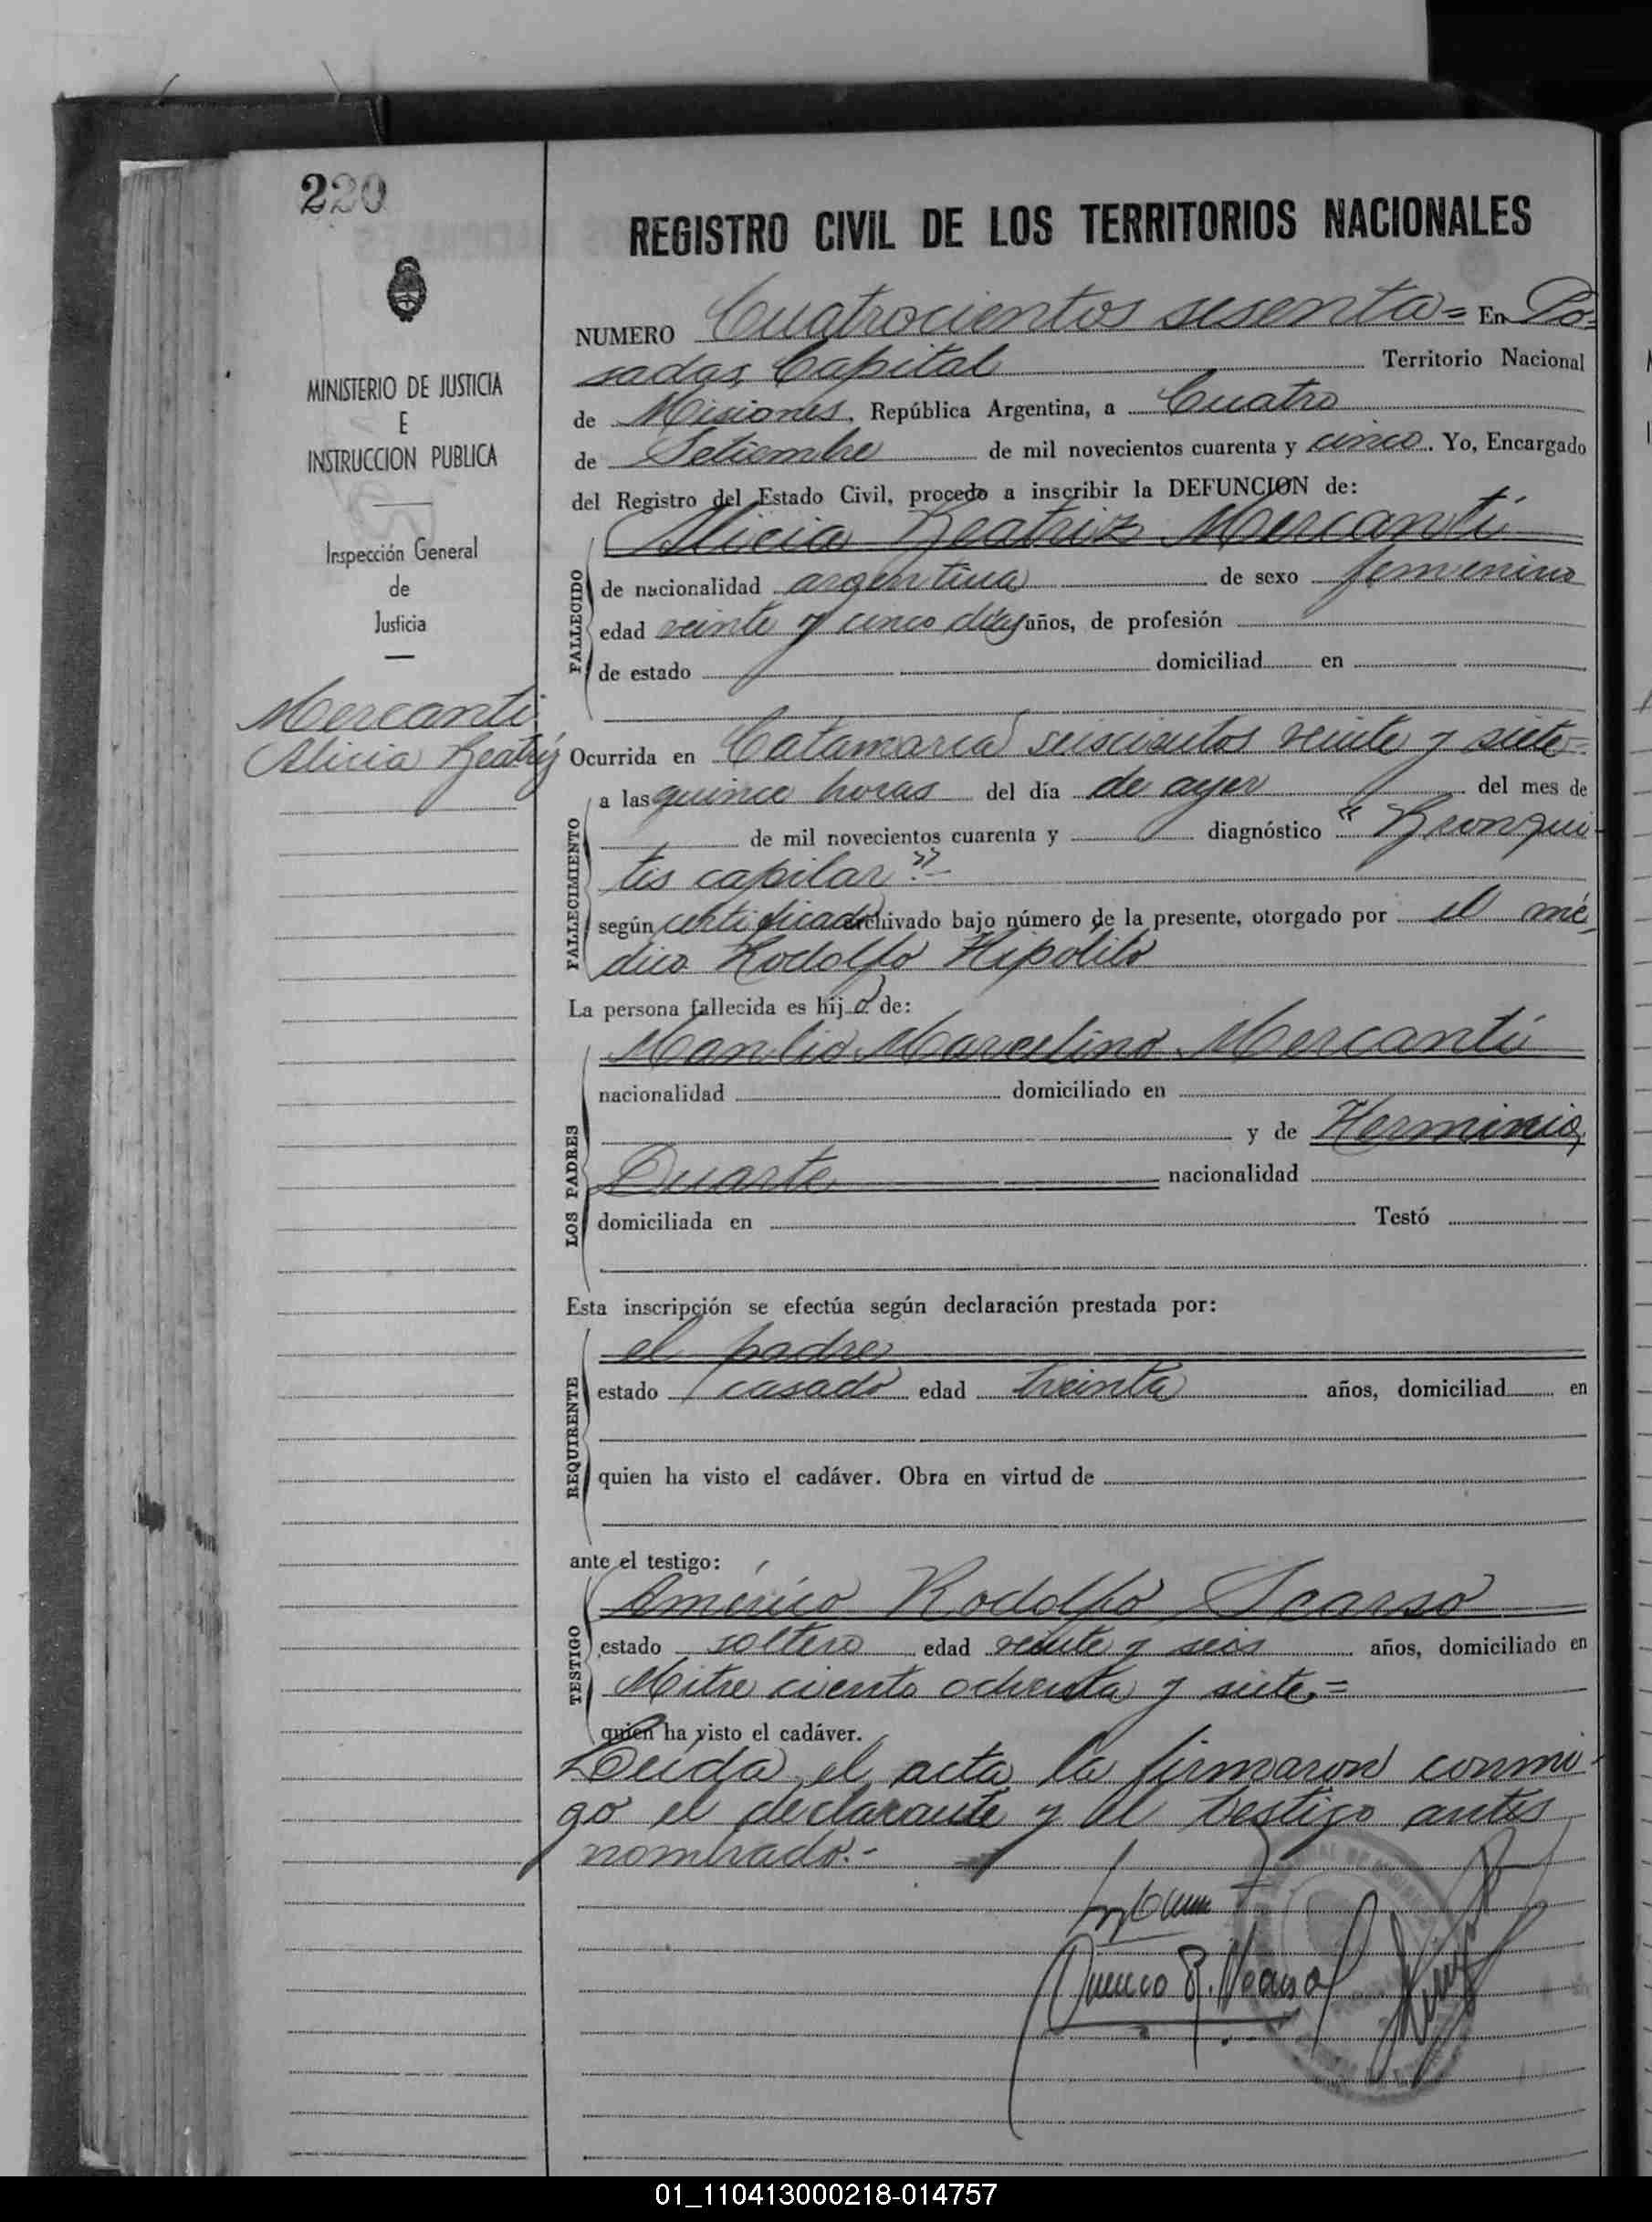 220
REGISTRO CIVIL DE LOS TERRITORIOS NACIONALES
MINISTERIO DE JUSTICIA
E
INSTRUCCION PUBLICA
Inspección General
de
Justicia
Mercanti
Alicia Beatriz
NUMERO Cuatrocientos sesenta = En Po=
sadas, Capital Territorio Nacional
de Misiones, República Argentina, a Cuatro
de Setiembre de mil novecientos cuarenta y cinco. Yo, Encargado
del Registro del Estado Civil, procedo a inscribir la DEFUNCION de:
Alicia Beatriz Mercanti
FALLECIDO
de nacionalidad argentina de sexo femenino
edad veinte y cinco días años, de profesión
de estado domiciliad en
Ocurrida en Catamarca seiscientos veinte y siete =
FALLECIMIENTO
a las quince horas del día de ayer del mes de
de mil novecientos cuarenta y diagnóstico "Bronqui-
tis capilar".-
según certificado archivado bajo número de la presente, otorgado por el mé
dico Rodolfo Hipólito
La persona fallecida es hij a de:
LOS PADRES
Manlio Marcelino Mercanti
nacionalidad domiciliado en
y de Herminia
Duarte nacionalidad
domiciliada en Testó
Esta inscripción se efectúa según declaración prestada por:
REQUIRENTE
el padre
estado casado edad treinta años, domiciliad en
quien ha visto el cadáver. Obra en virtud de
ante el testigo:
TESTIGO
Américo Rodolfo Scarso
estado soltero edad veinte y seis años, domiciliado en
Mitre ciento ochenta y siete.=
quien ha visto el cadáver.
Leída el acta la firmaron conmi-
go el declarante y el testigo antes
nombrado.-
01_110413000218-014757